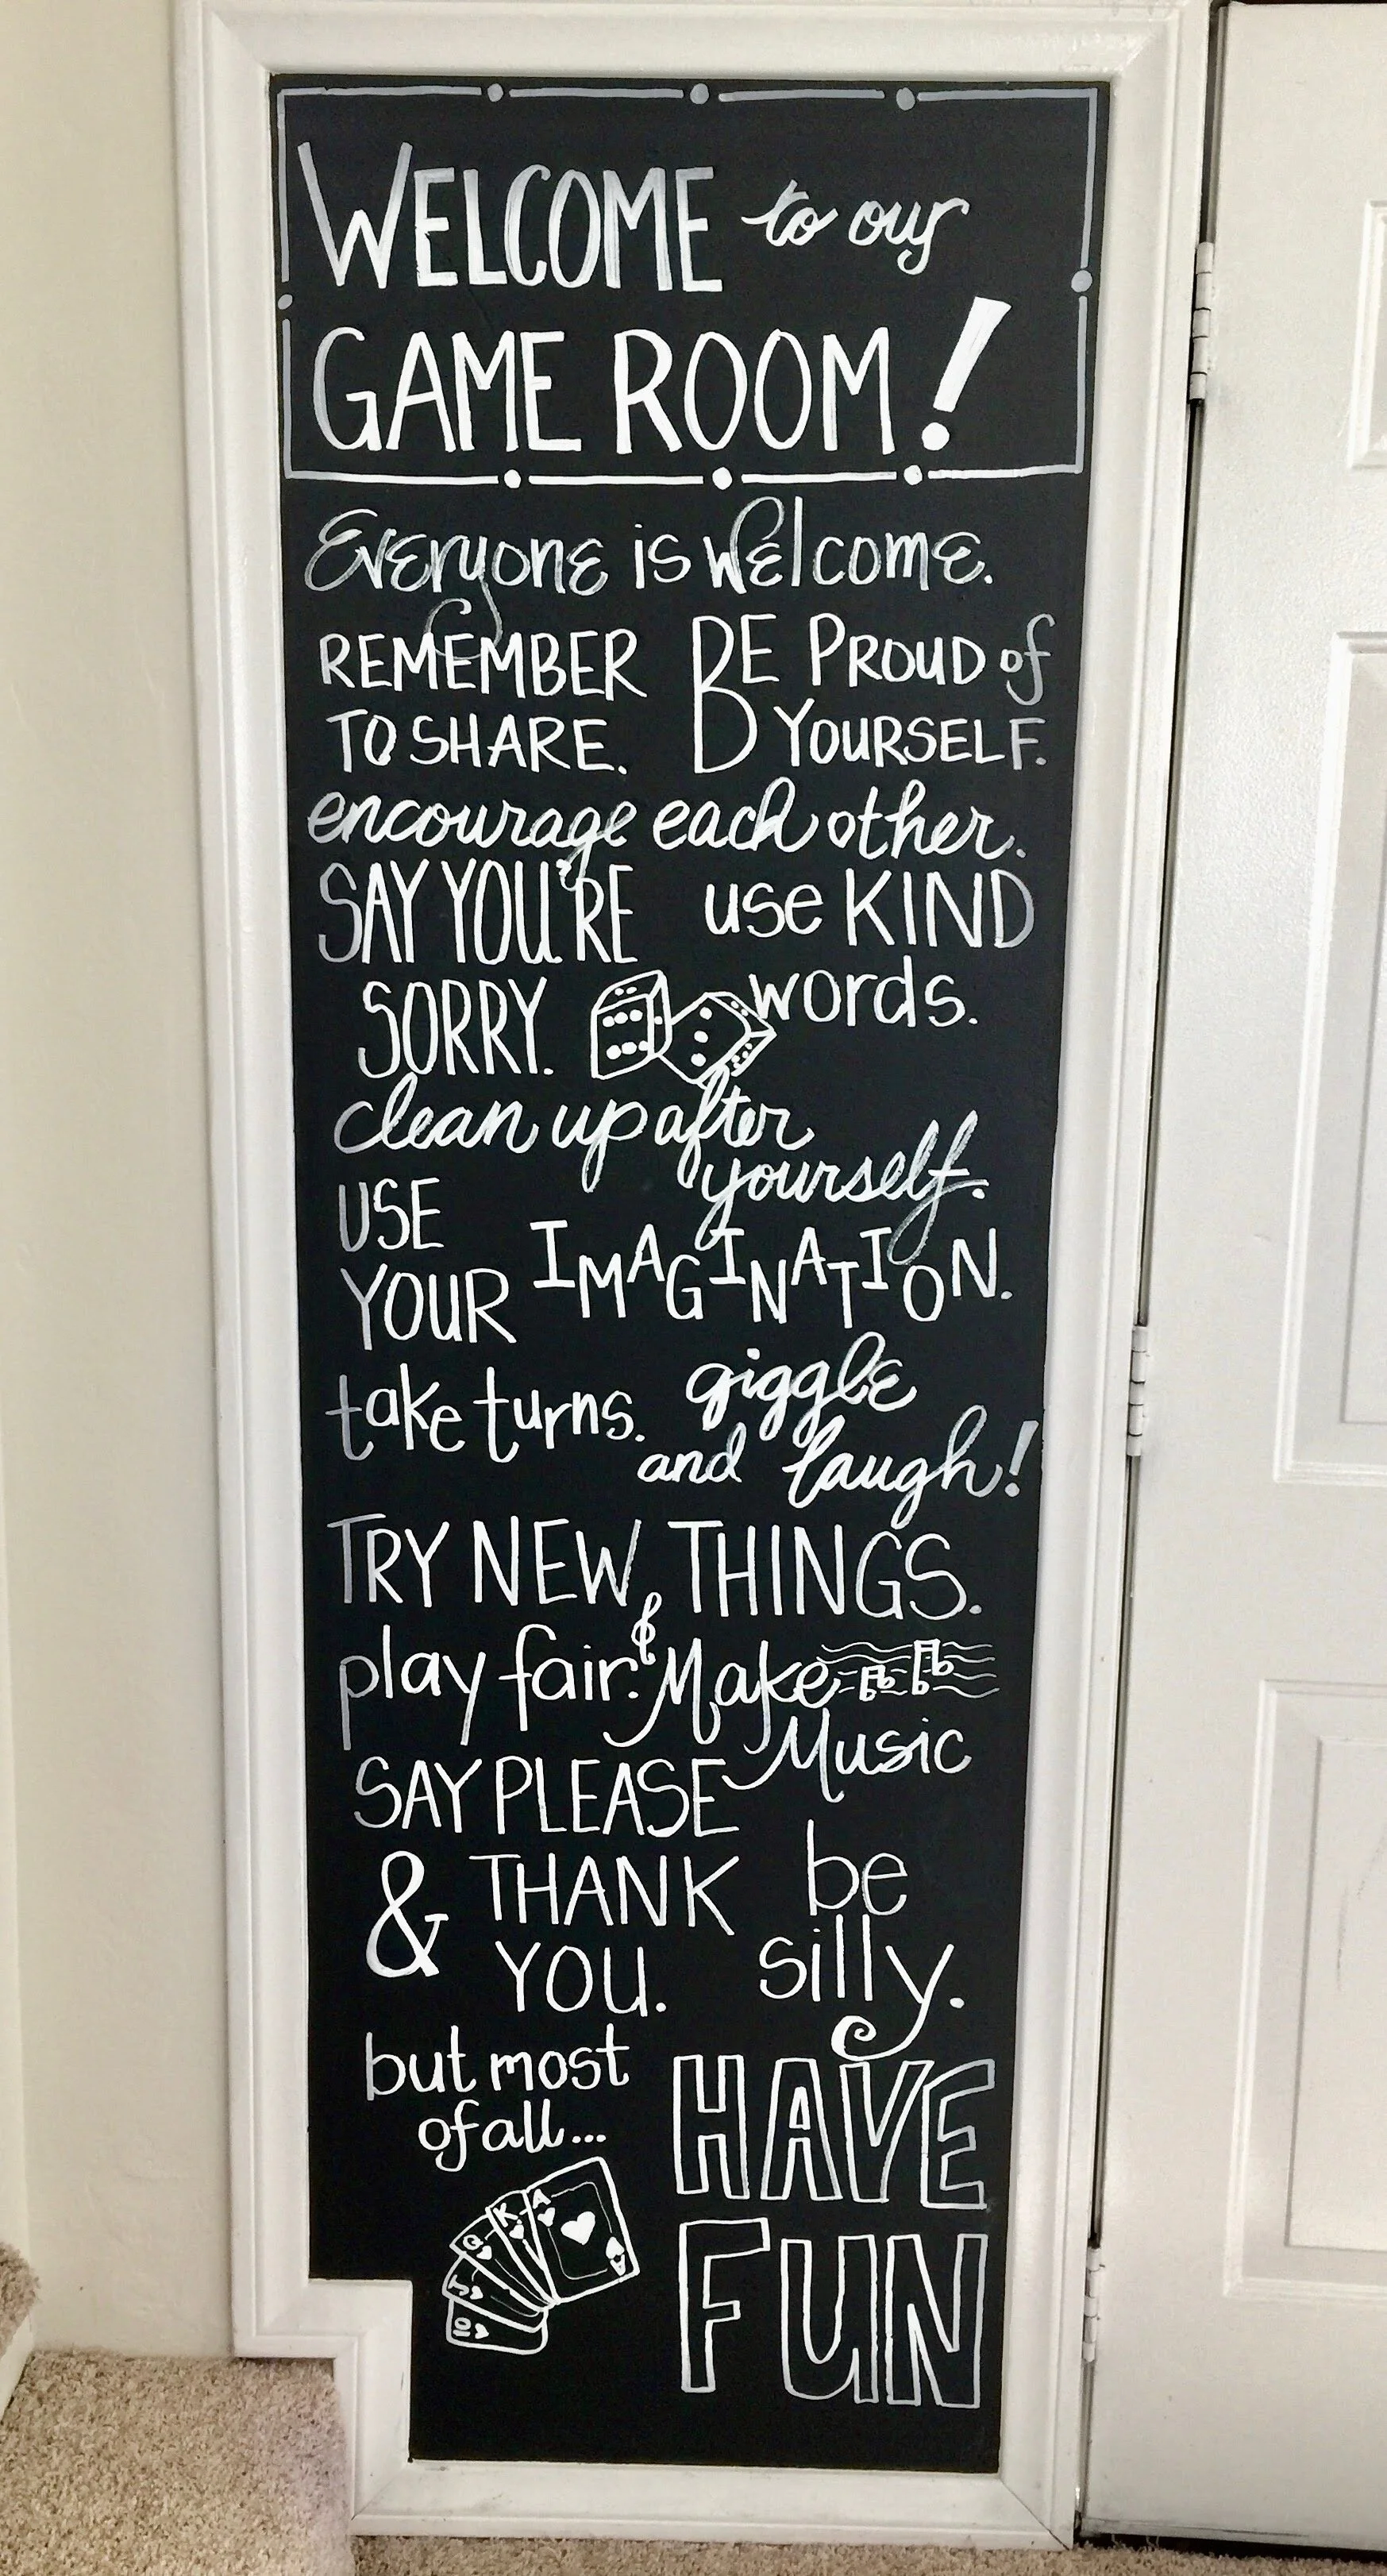 WELCOME to our
GAME ROOM!
Everyone is welcome.
REMEMBER
TO SHARE.
BE PROUD of
YOURSELF.
encourage each other.
SAY YOU'RE
SORRY.
use KIND
words.
clean up after
yourself.
USE
YOUR IMAGINATION.
take turns.
giggle
and laugh!
TRY NEW THINGS.
play fair.
& Make
Music
SAY PLEASE
& THANK
YOU.
be
silly.
but most
of all...
HAVE
FUN
A
K
Q
J
10
A